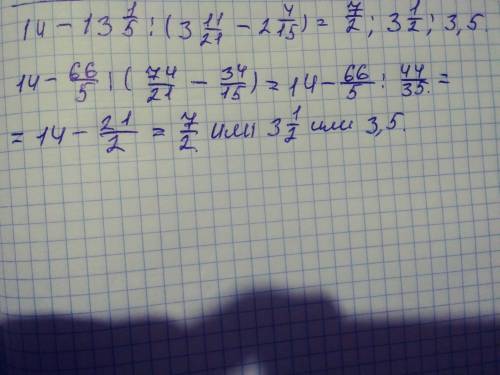 14 - 13 1/5 : (3 11/21 - 2 4/15) = 7/2 ; 3 1/2 ; 3,5.
14 - 66/5 : (74/21 - 34/15) = 14 - 66/5 : 44/35 =
= 14 - 21/2 = 7/2 или 3 1/2 или 3,5.